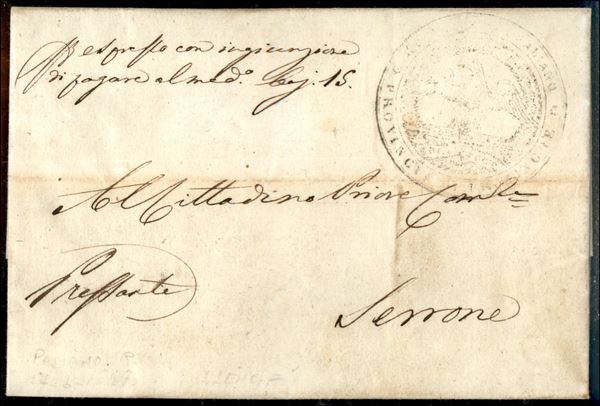 P espresso con ingiunzione
di pagare al med.º baj. 15.
Al Cittadino Priore Com.le
Pressante
Serrone
PALIANO